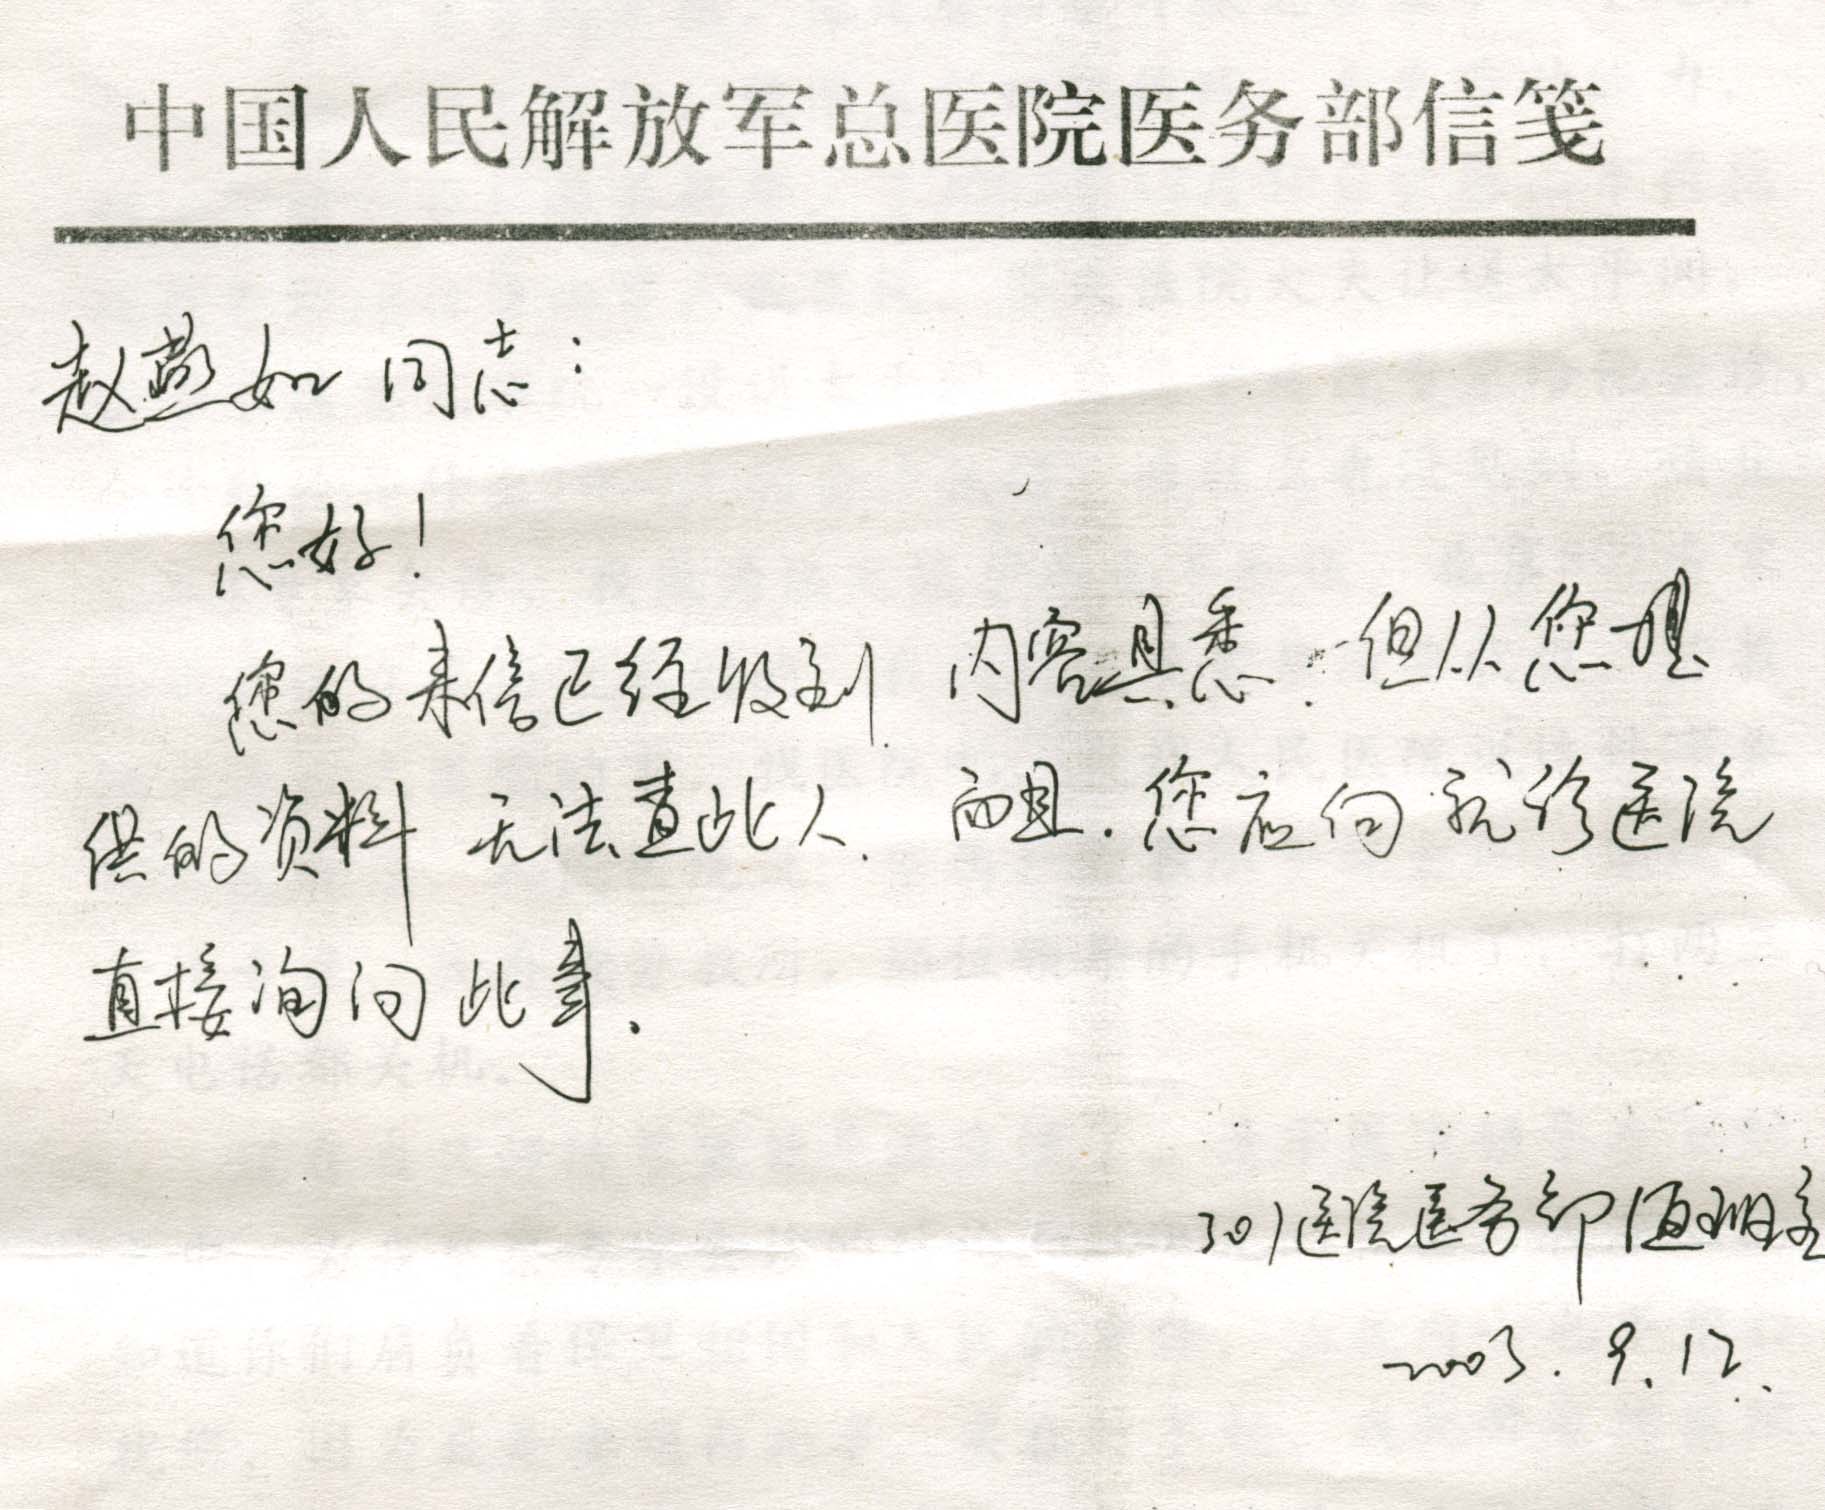 中国人民解放军总医院医务部信笺
赵燕如同志：
您好！
您的来信已经收到，内容具悉，但从您提
供的资料无法查此人，而且，您应向就诊医院
直接询问此事．
301医院医务部值班室
2003．9．12．